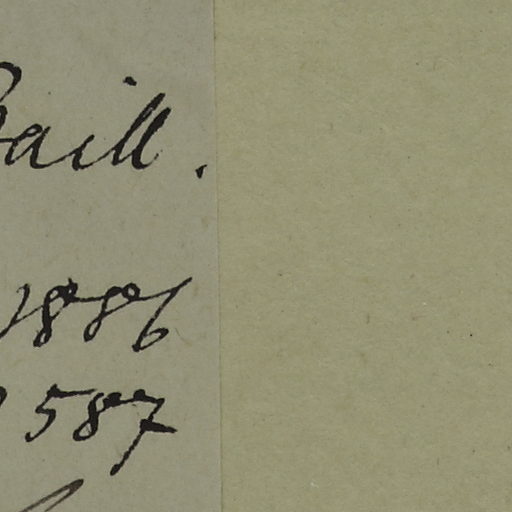 Baill.
1886
587